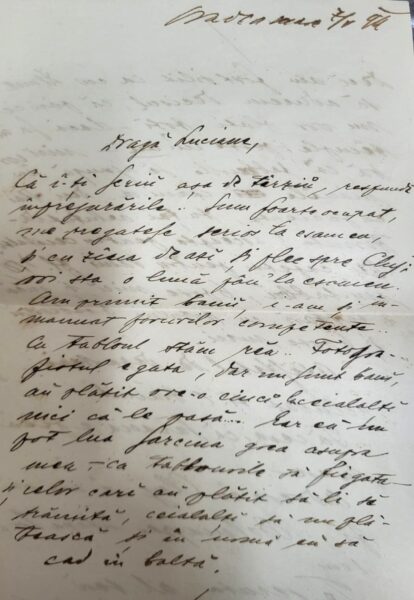 Oradea mare 7/V 92
Dragă Luciane,
Că i-ți scriu așa de târziu, respund
inpregiurările.. Sum foarte ocupat,
me pregatesc serios la esamen,
și cu ziua de ași, și plec spre Cluj
voi sta o lună pân' la esamen.
Am primit banii, i-am și în-
manuat forurilor competente..
Cu tabloul stăm rea.. Fotogra-
fiatul e gata, dar nu sunt bani,
au plătit vre-o cinci, ceialalți
nici că le pasă... Iar eu nu
pot lua sarcina grea asupra
mea - ca tablourile să fie gata
și celor cari au plătit să li se
trămită, ceialalți să nu plă-
tească și în urmă eu să
cad în baltă.